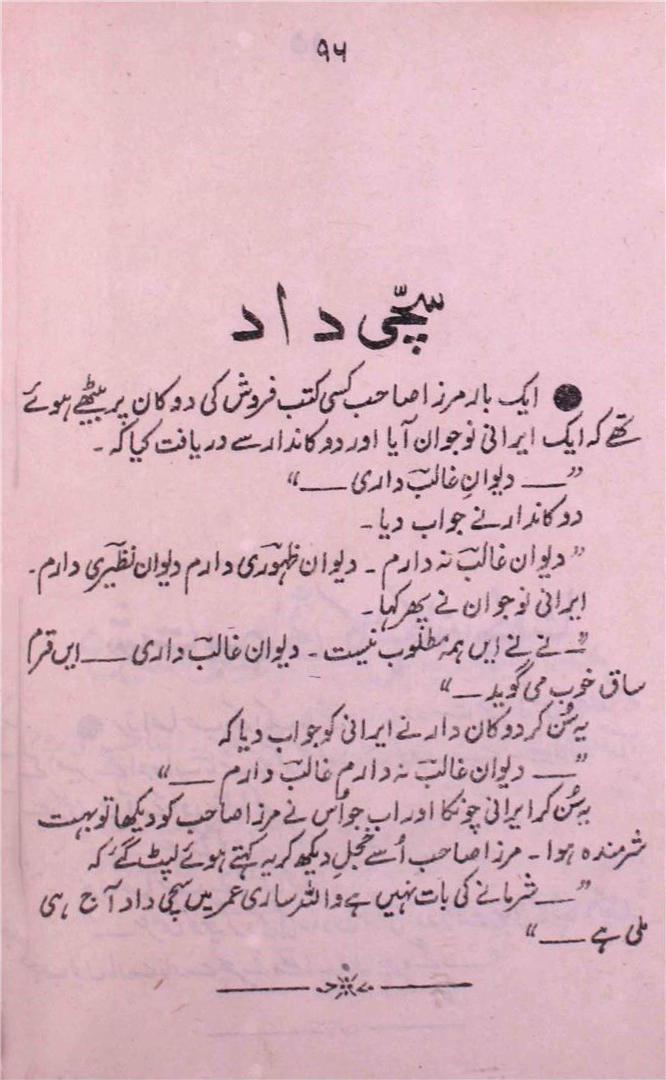 ۹۵
سچّی داد
● ایک بار مرزا صاحب کسی کتب فروش کی دوکان پر بیٹھے ہوئے
تھے کہ ایک ایرانی نوجوان آیا اور دوکاندار سے دریافت کیا کہ ۔
”— دیوانِ غالبؔ داری —“
دوکاندار نے جواب دیا ۔
”دیوان غالبؔ نہ دارم ۔ دیوان ظہوریؔ دارم دیوان نظیریؔ دارم ۔
ایرانی نوجوان نے پھر کہا ۔
”— نے نے ایں ہمہ مطلوب نیست ۔ دیوان غالبؔ داری — ایں قرم
ساق خوب می گوید —“
یہ سُن کر دوکان دار نے ایرانی کو جواب دیا کہ
”— دیوان غالبؔ نہ دارم غالبؔ دارم —“
یہ سُن کر ایرانی چونکا اور اب جو اُس نے مرزا صاحب کو دیکھا تو بہت
شرمندہ ہوا ۔ مرزا صاحب اُسے خجل دیکھ کر یہ کہتے ہوئے لپٹ گئے کہ
”— شرمانے کی بات نہیں ہے واللہ ساری عمر میں سچی داد آج ہی
ملی ہے —“